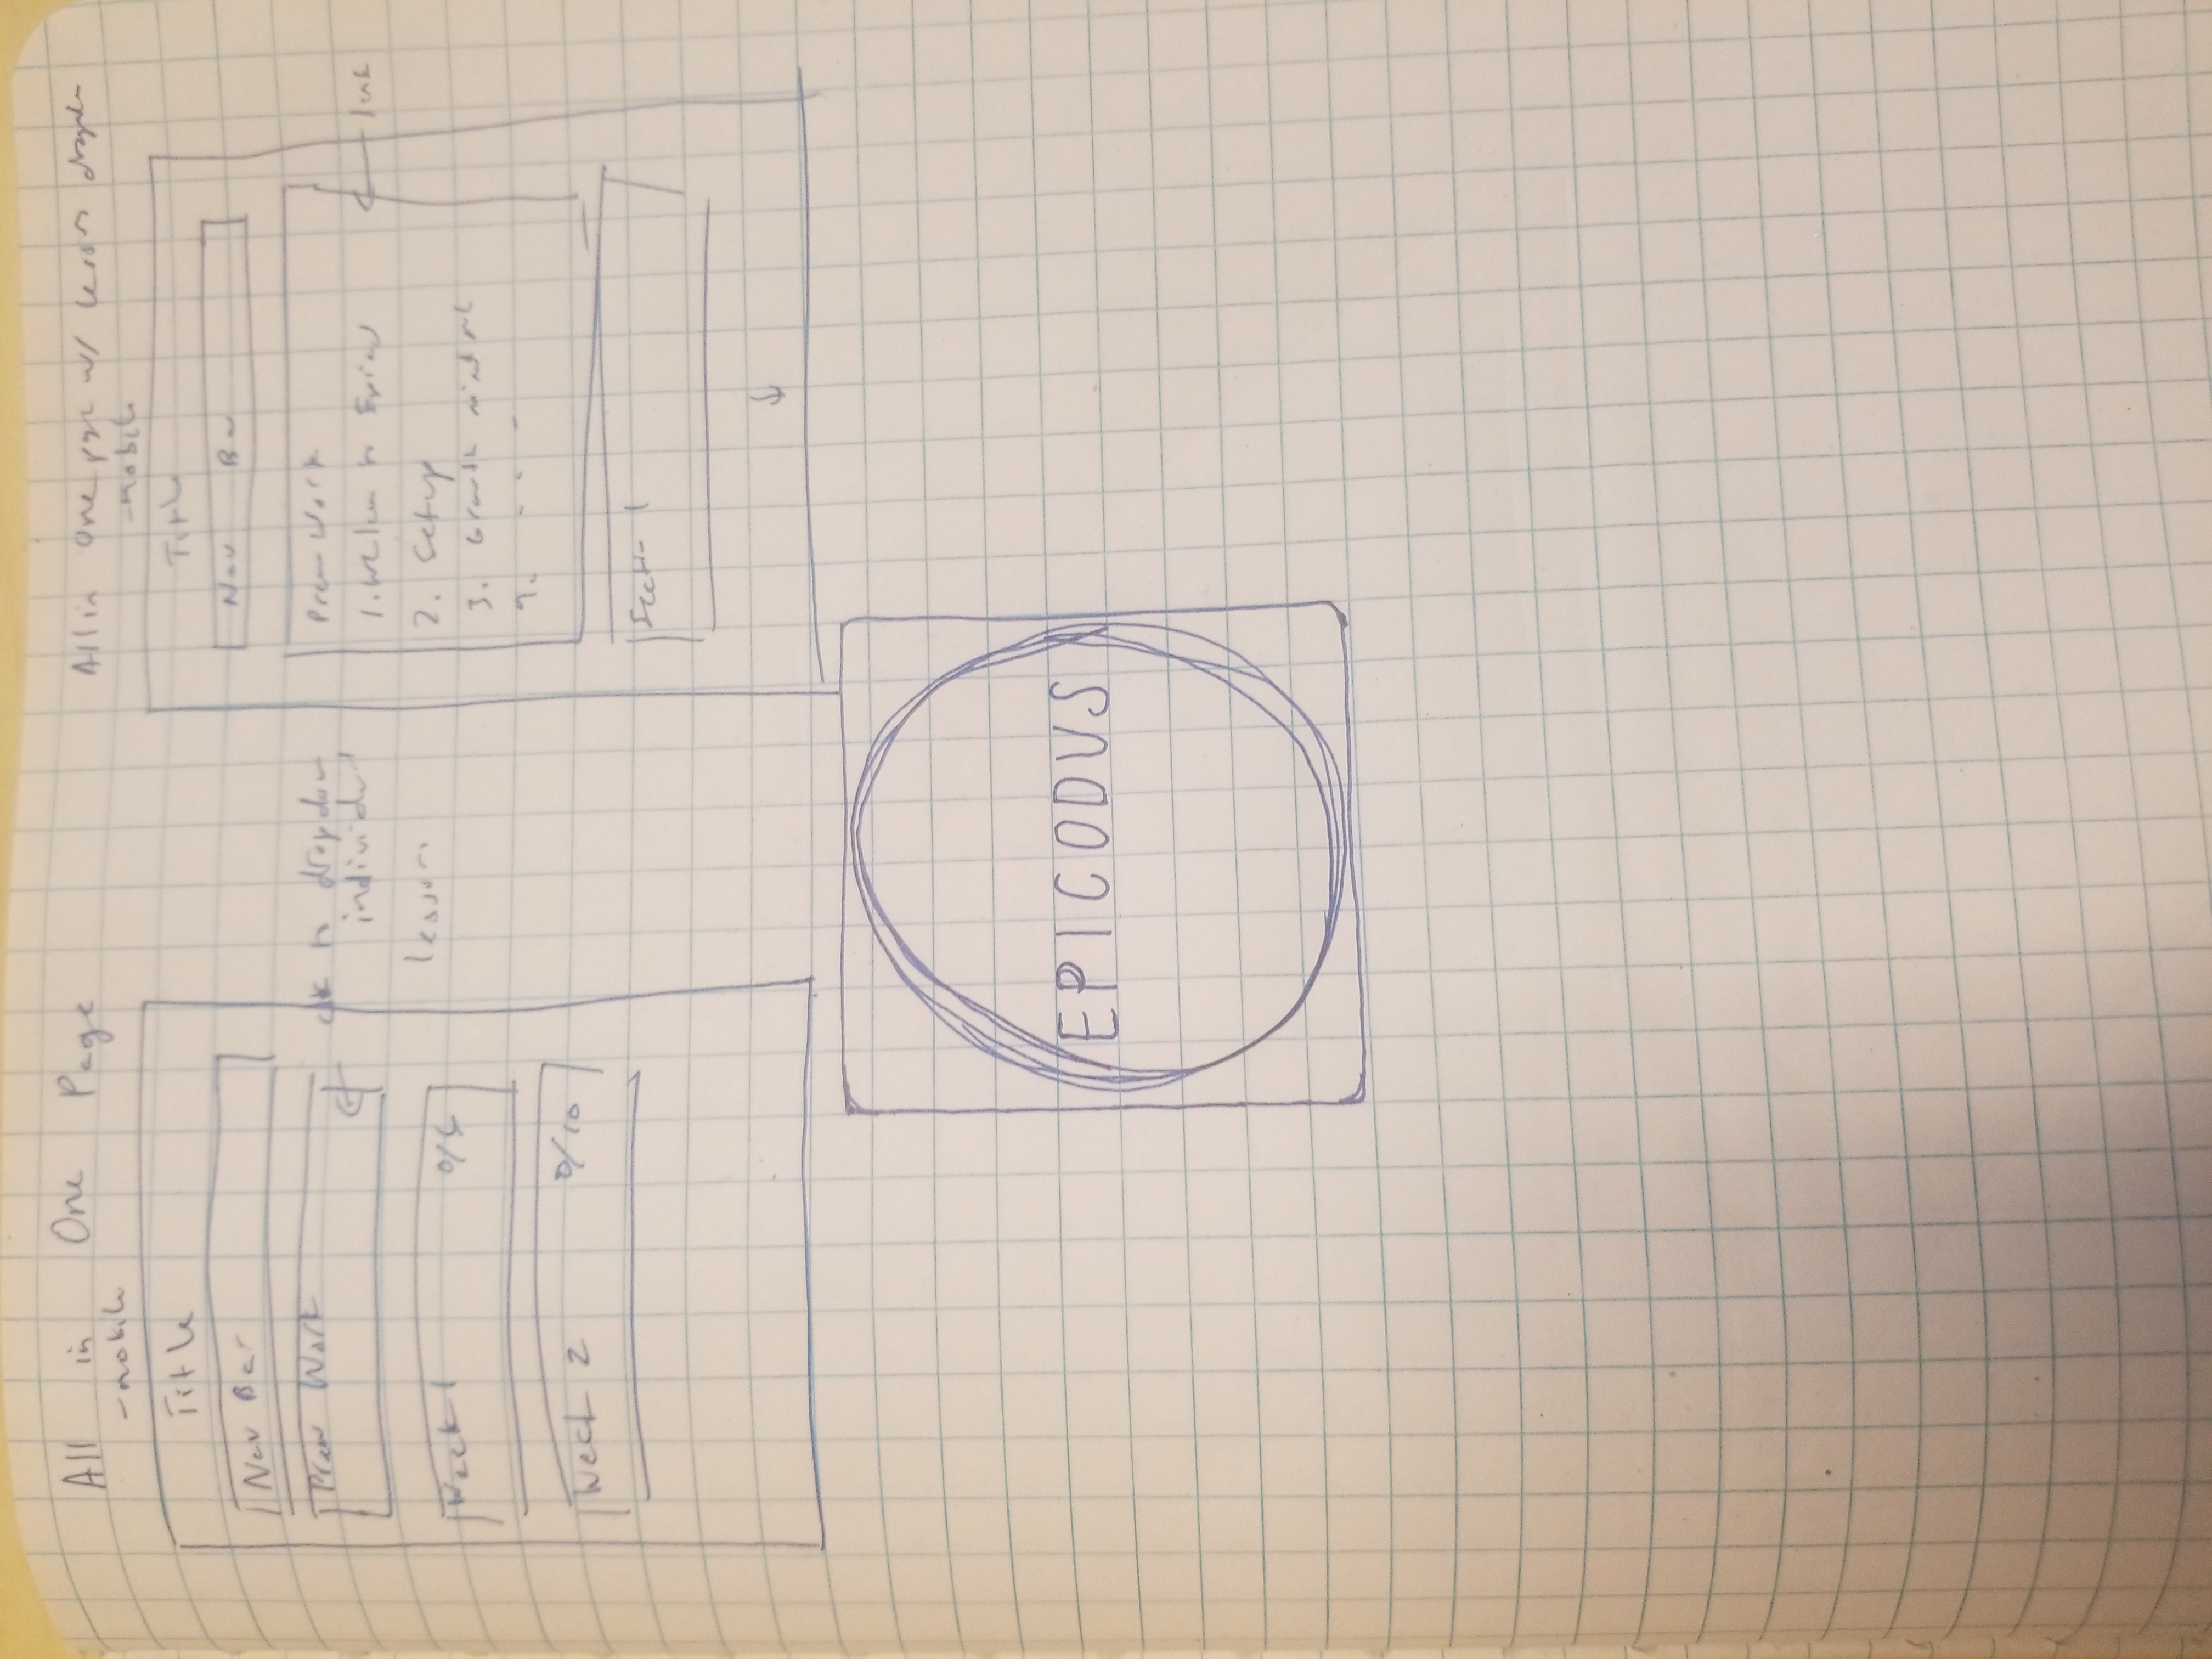 All in One Page
-mobile
Title
Nav Bar
Prew Work
to dropdown
individual
lesson
Week 1 0/5
Week 2 0/10
All in One page w/ lesson
-mobile
Title
Nav Bar
Prew Work
1. Welcome to
2. Setup
3. Growth mindset
4. - - -
link
Section 1
EPICODUS